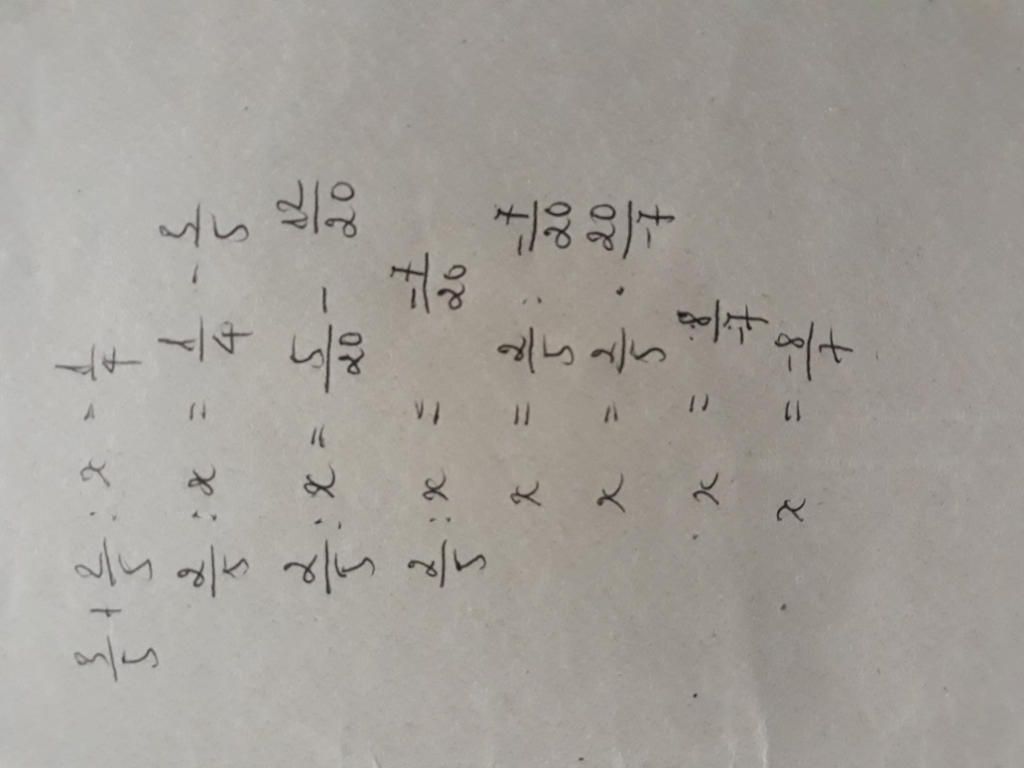 3/5 + 2/5 : x = 1/4
2/5 : x = 1/4 - 3/5
2/5 : x = 5/20 - 12/20
2/5 : x = -7/20
x = 2/5 : -7/20
x = 2/5 · 20/-7
x = 8/-7
x = -8/7